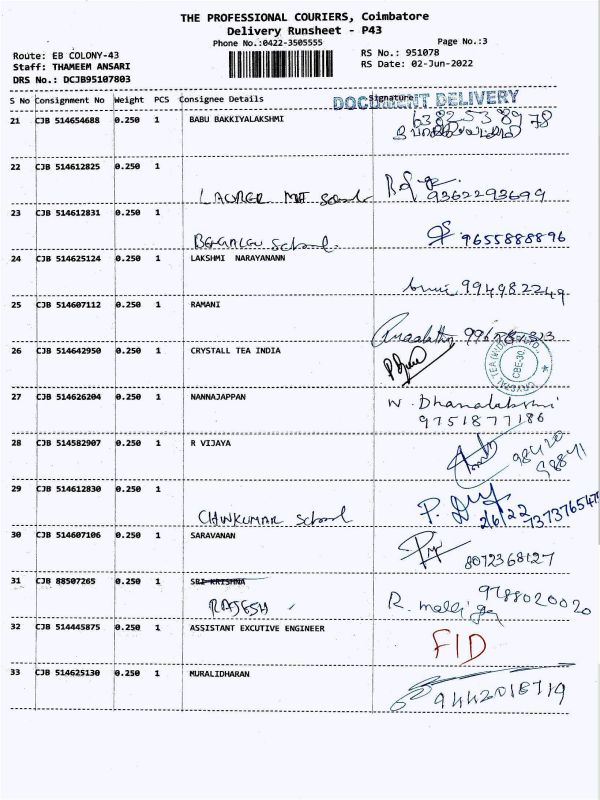 THE PROFESSIONAL COURIERS, Coimbatore
Delivery Runsheet - P43
Phone No.:0422-3505555 Page No.:3
Route: EB COLONY-43 RS No.: 951078
Staff: THAMEEM ANSARI RS Date: 02-Jun-2022
DRS No.: DCJB95107803
S No Consignment No Weight PCS Consignee Details Signature
DOCUMENT DELIVERY
21 CJB 514654688 0.250 1 BABU BAKKIYALAKSHMI
6382538978
22 CJB 514612825 0.250 1
School 9362293699
23 CJB 514612831 0.250 1
School. 9655888896
24 CJB 514625124 0.250 1 LAKSHMI NARAYANANN
994982249
25 CJB 514607112 0.250 1 RAMANI
26 CJB 514642950 0.250 1 CRYSTALL TEA INDIA
CBE-30.
27 CJB 514626204 0.250 1 NANNAJAPPAN
W. Dhanalakshmi
9751877186
28 CJB 514582907 0.250 1 R VIJAYA
98420
29 CJB 514612830 0.250 1
CHINKUMAR School 2/6/22
30 CJB 514607106 0.250 1 SARAVANAN
8072368127
31 CJB 88507265 0.250 1 SRI KRISHNA
RAJESH 9788020020
32 CJB 514445875 0.250 1 ASSISTANT EXCUTIVE ENGINEER
FID
33 CJB 514625130 0.250 1 MURALIDHARAN
9442018719